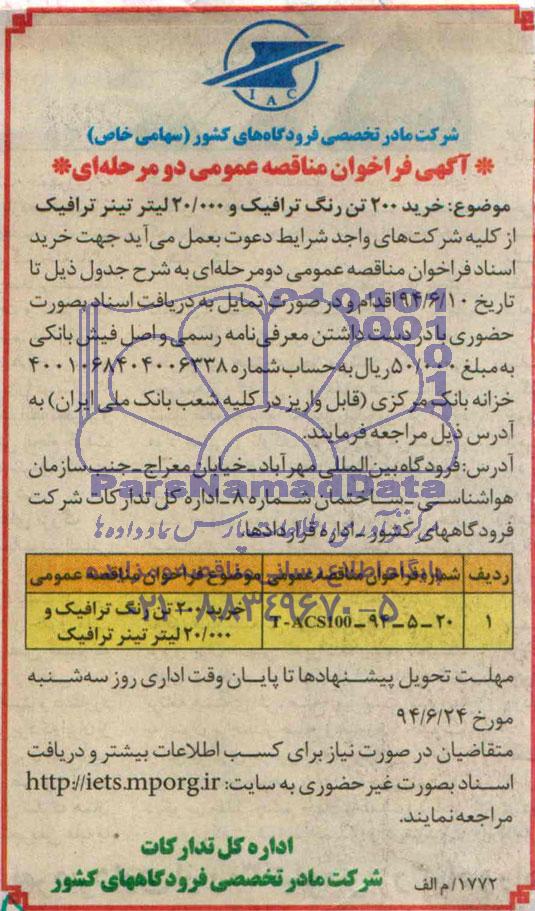 IAC
شرکت مادر تخصصی فرودگاه‌های کشور (سهامی خاص)
* آگهی فراخوان مناقصه عمومی دو مرحله‌ای *
موضوع: خرید ۲۰۰ تن رنگ ترافیک و ۲۰/۰۰۰ لیتر تینر ترافیک
از کلیه شرکت‌های واجد شرایط دعوت بعمل می‌آید جهت خرید
اسناد فراخوان مناقصه عمومی دومرحله‌ای به شرح جدول ذیل تا
تاریخ ۹۴/۶/۱۰ اقدام و در صورت تمایل به دریافت اسناد بصورت
حضوری با در دست داشتن معرفی‌نامه رسمی و اصل فیش بانکی
به مبلغ ۵۰/۰۰۰ ریال به حساب شماره ۴۰۰۱۰۶۸۴۰۴۰۰۶۳۳۸
خزانه بانک مرکزی (قابل واریز در کلیه شعب بانک ملی ایران) به
آدرس ذیل مراجعه فرمایند.
آدرس: فرودگاه بین‌المللی مهرآباد ـ خیابان معراج ـ جنب سازمان
هواشناسی ـ ساختمان شماره ۸ ـ اداره کل تدارکات شرکت
فرودگاههای کشور ـ اداره قراردادها.
ParsNamadData
پایگاه اطلاع رسانی مناقصه و مزایده
۰۲۱-۸۸۳۴۹۶۷۰-۵
ردیف شماره فراخوان مناقصه عمومی موضوع فراخوان مناقصه عمومی
۱ T-ACS100 ـ ۹۴ ـ ۵ ـ ۲۰ خرید ۲۰۰ تن رنگ ترافیک و
۲۰/۰۰۰ لیتر تینر ترافیک
مهلت تحویل پیشنهادها تا پایان وقت اداری روز سه‌شنبه
مورخ ۹۴/۶/۲۴
متقاضیان در صورت نیاز برای کسب اطلاعات بیشتر و دریافت
اسناد بصورت غیرحضوری به سایت: http://iets.mporg.ir
مراجعه نمایند.
اداره کل تدارکات
شرکت مادر تخصصی فرودگاههای کشور
۱۷۷۲/م الف